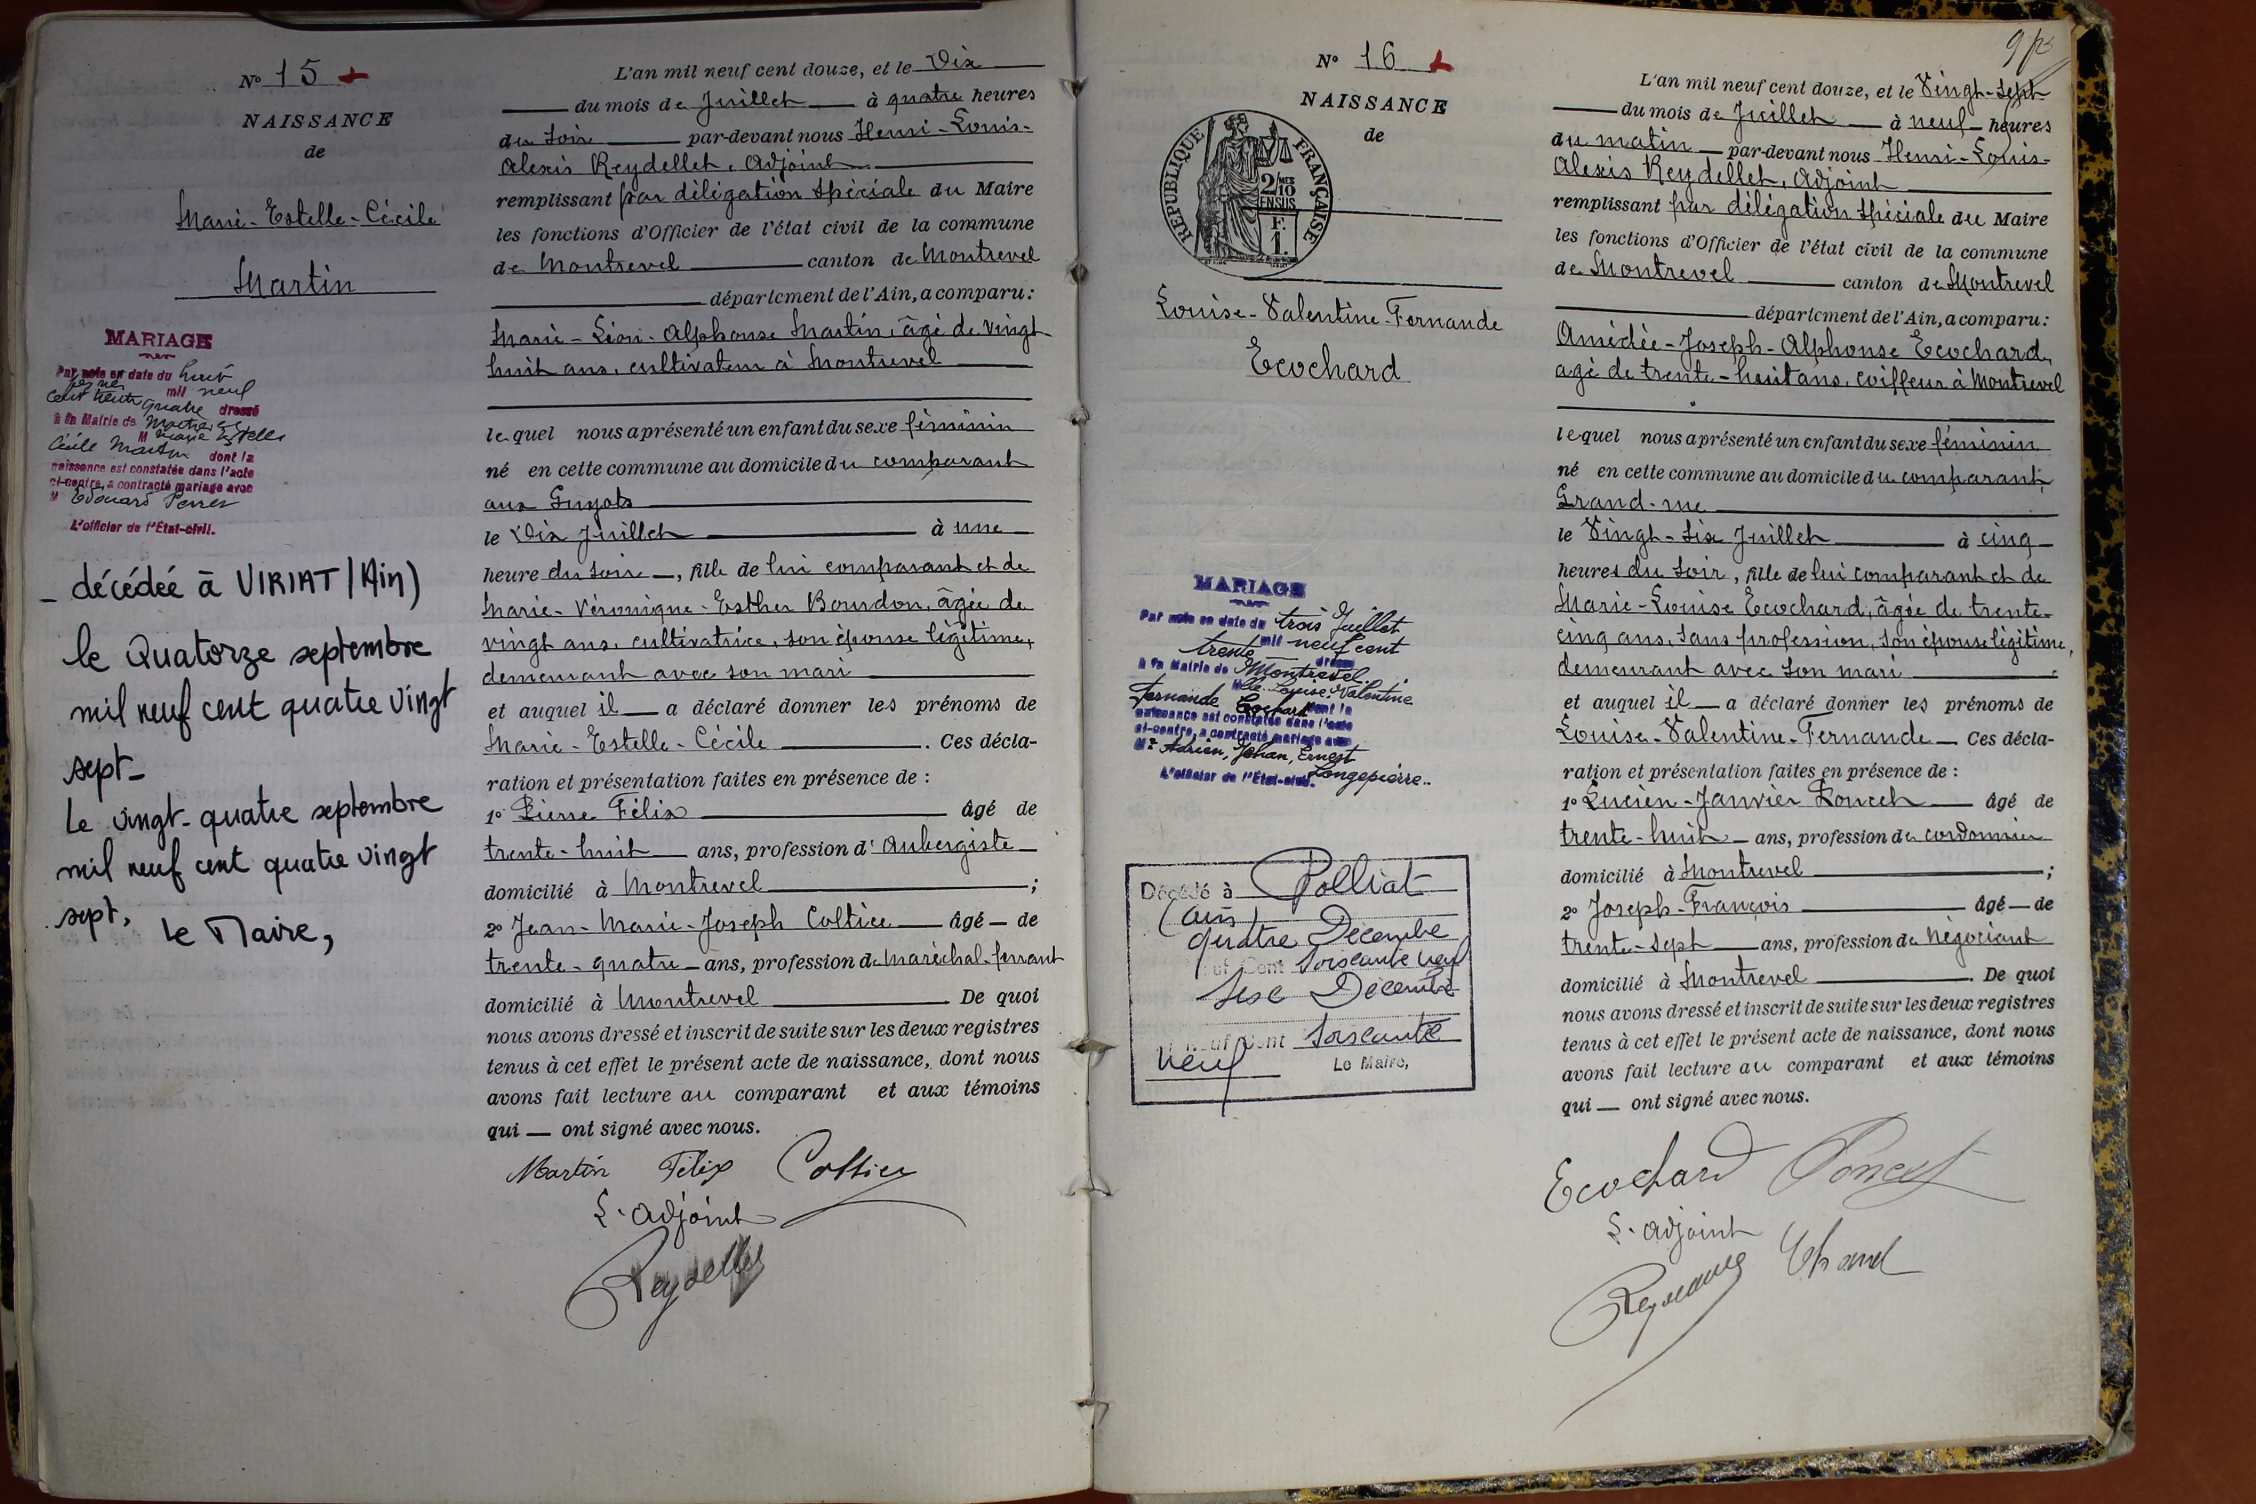 N° 15
NAISSANCE
de
Marie-Estelle-Cécile
Martin
MARIAGE
Par acte en date du huit
mil neuf
cent trente quatre dressé
à la Mairie de Montrevel
M Marie Estelle
Cécile Martin dont la
naissance est constatée dans l'acte
ci-contre, a contracté mariage avec
M Edouard Perret
L'officier de l'État-civil.
_ décédée à VIRIAT (Ain)
le Quatorze septembre
mil neuf cent quatre vingt
sept_
Le vingt-quatre septembre
mil neuf cent quatre vingt
sept,
Le Maire,
L'an mil neuf cent douze, et le Dix
du mois de Juillet à quatre heures
du soir par-devant nous Henri-Louis-
Alexis Reydellet, Adjoint
remplissant par délégation spéciale du Maire
les fonctions d'Officier de l'état civil de la commune
de Montrevel canton de Montrevel
département de l'Ain, a comparu:
Marie-Léon-Alphonse Martin, âgé de vingt
huit ans, cultivateur à Montrevel
lequel nous a présenté un enfant du sexe féminin
né en cette commune au domicile du comparant
aux Guyots
le Dix Juillet à une
heure du soir, fille de lui comparant et de
Marie-Véronique-Esther Bourdon, âgée de
vingt ans, cultivatrice, son épouse légitime,
demeurant avec son mari
et auquel il a déclaré donner les prénoms de
Marie-Estelle-Cécile. Ces décla-
ration et présentation faites en présence de :
1° Pierre Félix âgé de
trente-huit ans, profession d'Aubergiste
domicilié à Montrevel ;
2° Jean-Marie-Joseph Coltice âgé de
trente-quatre ans, profession de Maréchal-ferrant
domicilié à Montrevel De quoi
nous avons dressé et inscrit de suite sur les deux registres
tenus à cet effet le présent acte de naissance, dont nous
avons fait lecture au comparant et aux témoins
qui ont signé avec nous.
Martin Félix Coltice
L'adjoint
Reydellet
9
N° 16
NAISSANCE
de
RÉPUBLIQUE FRANÇAISE
2/10 MES
EN SUS
F.
1.
Louise-Valentine-Fernande
Ecochard
MARIAGE
Par acte en date du trois Juillet
mil neuf cent
trente dressé
à la Mairie de Montrevel.
Mlle Louise Valentine
Fernande Ecochard dont la
naissance est constatée dans l'acte
ci-contre, a contracté mariage avec
Mr Adrien, Johan, Ernest
Longepierre..
L'officier de l'État-civil.
Décédé à Polliat
(Ain)
quatre Décembre
neuf Cent Soixante neuf
Sese Décembre
neuf Cent Soixante
neuf
Le Maire,
L'an mil neuf cent douze, et le Vingt-sept
du mois de Juillet à neuf heures
du matin par-devant nous Henri-Louis-
Alexis Reydellet, Adjoint
remplissant par délégation spéciale du Maire
les fonctions d'Officier de l'état civil de la commune
de Montrevel canton de Montrevel
département de l'Ain, a comparu:
Amédée-Joseph-Alphonse Ecochard,
agé de trente-huit ans, coiffeur à Montrevel
lequel nous a présenté un enfant du sexe féminin
né en cette commune au domicile du comparant,
Grand-rue
le Vingt-Six Juillet à cinq
heures du soir, fille de lui comparant et de
Marie-Louise Ecochard, âgée de trente-
cinq ans, sans profession, son épouse légitime,
demeurant avec son mari
et auquel il a déclaré donner les prénoms de
Louise-Valentine-Fernande Ces décla-
ration et présentation faites en présence de :
1° Lucien-Janvier Poncet âgé de
trente-huit ans, profession de cordonnier
domicilié à Montrevel ;
2° Joseph-François âgé de
trente-sept ans, profession de Négociant
domicilié à Montrevel. De quoi
nous avons dressé et inscrit de suite sur les deux registres
tenus à cet effet le présent acte de naissance, dont nous
avons fait lecture au comparant et aux témoins
qui ont signé avec nous.
Ecochard Poncet
L'adjoint